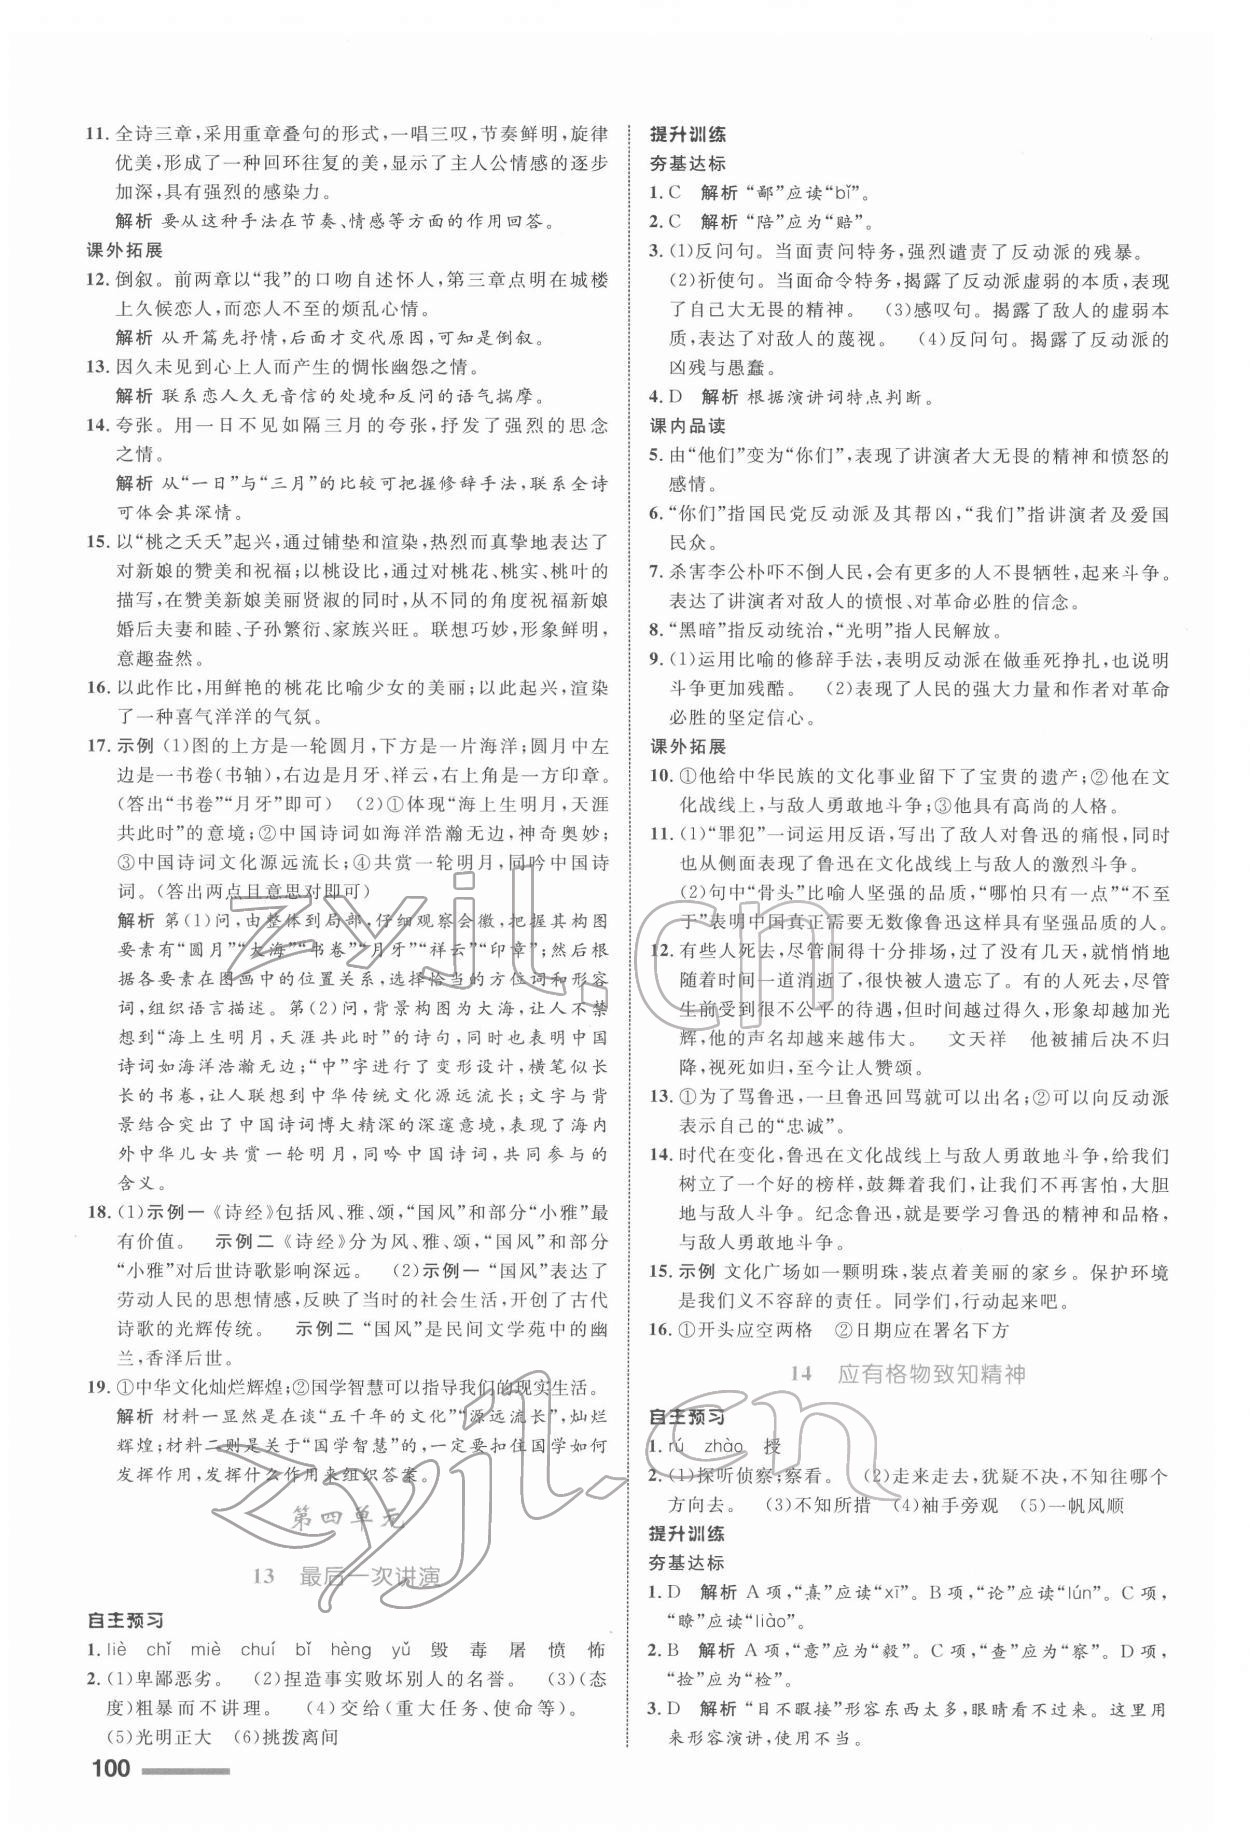 11. 全诗三章,采用重章叠句的形式,一唱三叹,节奏鲜明,旋律
优美,形成了一种回环往复的美,显示了主人公情感的逐步
加深,具有强烈的感染力。
解析 要从这种手法在节奏、情感等方面的作用回答。
课外拓展
12. 倒叙。前两章以“我”的口吻自述怀人,第三章点明在城楼
上久候恋人,而恋人不至的烦乱心情。
解析 从开篇先抒情,后面才交代原因,可知是倒叙。
13. 因久未见到心上人而产生的惆怅幽怨之情。
解析 联系恋人久无音信的处境和反问的语气揣摩。
14. 夸张。用一日不见如隔三月的夸张,抒发了强烈的思念
之情。
解析 从“一日”与“三月”的比较可把握修辞手法,联系全诗
可体会其深情。
15. 以“桃之夭夭”起兴,通过铺垫和渲染,热烈而真挚地表达了
对新娘的赞美和祝福;以桃设比,通过对桃花、桃实、桃叶的
描写,在赞美新娘美丽贤淑的同时,从不同的角度祝福新娘
婚后夫妻和睦、子孙繁衍、家族兴旺。联想巧妙,形象鲜明,
意趣盎然。
16. 以此作比,用鲜艳的桃花比喻少女的美丽;以此起兴,渲染
了一种喜气洋洋的气氛。
17. 示例 (1)图的上方是一轮圆月,下方是一片海洋;圆月中左
边是一书卷(书轴),右边是月牙、祥云,右上角是一方印章。
(答出“书卷”“月牙”即可) (2)①体现“海上生明月,天涯
共此时”的意境;②中国诗词如海洋浩瀚无边,神奇奥妙;
③中国诗词文化源远流长;④共赏一轮明月,同吟中国诗
词。(答出两点且意思对即可)
解析 第(1)问,由整体到局部,仔细观察会徽,把握其构图
要素有“圆月”“大海”“书卷”“月牙”“祥云”“印章”;然后根
据各要素在图画中的位置关系,选择恰当的方位词和形容
词,组织语言描述。第(2)问,背景构图为大海,让人不禁
想到“海上生明月,天涯共此时”的诗句,同时表明中国
诗词如海洋浩瀚无边;“中”字进行了变形设计,横笔似长
长的书卷,让人联想到中华传统文化源远流长;文字与背
景结合突出了中国诗词博大精深的深邃意境,表现了海内
外中华儿女共赏一轮明月,同吟中国诗词,共同参与的
含义。
18. (1)示例一《诗经》包括风、雅、颂,“国风”和部分“小雅”最
有价值。 示例二《诗经》分为风、雅、颂,“国风”和部分
“小雅”对后世诗歌影响深远。 (2)示例一 “国风”表达了
劳动人民的思想情感,反映了当时的社会生活,开创了古代
诗歌的光辉传统。 示例二 “国风”是民间文学苑中的幽
兰,香泽后世。
19. ①中华文化灿烂辉煌;②国学智慧可以指导我们的现实生活。
解析 材料一显然是在谈“五千年的文化”“源远流长”,灿烂
辉煌;材料二则是关于“国学智慧”的,一定要扣住国学如何
发挥作用,发挥什么作用来组织答案。
第四单元
13 最后一次讲演
自主预习
1. liè chǐ miè chuí bǐ hèng yǔ 毁 毒 屠 愤 怖
2. (1)卑鄙恶劣。 (2)捏造事实败坏别人的名誉。 (3)(态
度)粗暴而不讲理。 (4)交给(重大任务、使命等)。
(5)光明正大 (6)挑拨离间
100
提升训练
夯基达标
1. C 解析 “鄙”应读“bǐ”。
2. C 解析 “陪”应为“赔”。
3. (1)反问句。当面责问特务,强烈谴责了反动派的残暴。
(2)祈使句。当面命令特务,揭露了反动派虚弱的本质,表现
了自己大无畏的精神。 (3)感叹句。揭露了敌人的虚弱本
质,表达了对敌人的蔑视。 (4)反问句。揭露了反动派的
凶残与愚蠢。
4. D 解析 根据演讲词特点判断。
课内品读
5. 由“他们”变为“你们”,表现了讲演者大无畏的精神和愤怒的
感情。
6. “你们”指国民党反动派及其帮凶,“我们”指讲演者及爱国
民众。
7. 杀害李公朴吓不倒人民,会有更多的人不畏牺牲,起来斗争。
表达了讲演者对敌人的愤恨、对革命必胜的信念。
8. “黑暗”指反动统治,“光明”指人民解放。
9. (1)运用比喻的修辞手法,表明反动派在做垂死挣扎,也说明
斗争更加残酷。 (2)表现了人民的强大力量和作者对革命
必胜的坚定信心。
课外拓展
10. ①他给中华民族的文化事业留下了宝贵的遗产;②他在文
化战线上,与敌人勇敢地斗争;③他具有高尚的人格。
11. (1)“罪犯”一词运用反语,写出了敌人对鲁迅的痛恨,同时
也从侧面表现了鲁迅在文化战线上与敌人的激烈斗争。
(2)句中“骨头”比喻人坚强的品质,“哪怕只有一点”“不至
于”表明中国真正需要无数像鲁迅这样具有坚强品质的人。
12. 有些人死去,尽管闹得十分排场,过了没有几天,就悄悄地
随着时间一道消逝了,很快被人遗忘了。有的人死去,尽管
生前受到很不公平的待遇,但时间越过得久,形象却越加光
辉,他的声名却越来越伟大。 文天祥 他被捕后决不归
降,视死如归,至今让人赞颂。
13. ①为了骂鲁迅,一旦鲁迅回骂就可以出名;②可以向反动派
表示自己的“忠诚”。
14. 时代在变化,鲁迅在文化战线上与敌人勇敢地斗争,给我们
树立了一个好的榜样,鼓舞着我们,让我们不再害怕,大胆
地与敌人斗争。纪念鲁迅,就是要学习鲁迅的精神和品格,
与敌人勇敢地斗争。
15. 示例 文化广场如一颗明珠,装点着美丽的家乡。保护环境
是我们义不容辞的责任。同学们,行动起来吧。
16. ①开头应空两格 ②日期应在署名下方
14 应有格物致知精神
自主预习
1. rú zhào 授
2. (1)探听侦察;察看。 (2)走来走去,犹疑不决,不知往哪个
方向去。 (3)不知所措 (4)袖手旁观 (5)一帆风顺
提升训练
夯基达标
1. D 解析 A项,“熹”应读“xī”。B项,“论”应读“lún”。C项,
“瞭”应读“liào”。
2. B 解析 A项,“意”应为“毅”。C项,“查”应为“察”。D项,
“捡”应为“检”。
3. D 解析 “目不暇接”形容东西太多,眼睛看不过来。这里用
来形容演讲,使用不当。
zyjl.cn
zyjl.cn